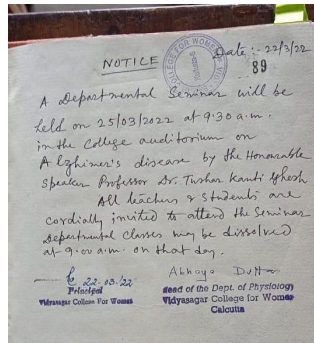 NOTICE
Date :- 22/3/22
COLLEGE FOR WOMEN
89
A Departmental Seminar will be
held on 25/03/2022 at 9:30 a.m.
in the College auditorium on
Alzhimer's disease by the Honourable
Speaker Professor Dr. Tushar Kanti Ghosh
All teachers & Students are
cordially invited to attend the Seminar
Departmental Classes may be dissolved
at 9.00 a.m. on that day.
22.03.'22
Principal
Vidyasagar College For Women
Abhaya Dutta
Head of the Dept. of Physiology
Vidyasagar College for Women
Calcutta